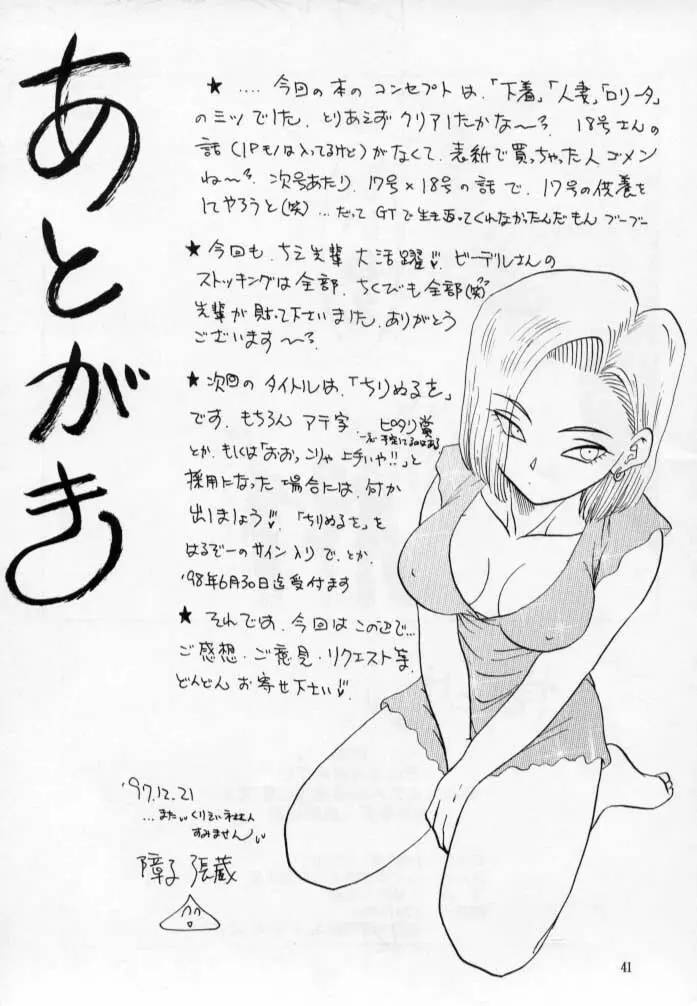 あとがき
★ .... 今回の本のコンセプトは、「下着」「人妻」「ロリータ」
のミツでした。とりあえずクリアしたかな〜?。18号さんの
話(1Pモノは入ってるけど)がなくて、表紙で買っちゃった人ゴメン
ね〜?。次号あたり、17号×18号の話で、17号の供養を
してやろうと(笑)...だって GTで生き返ってくれなかったんだもん ブーブー
★ 今回も、ちえ先輩 大活躍。ビーデルさんの
ストッキングは全部、ちくびも全部(笑)
先輩が貼って下さいました。ありがとう
ございます〜?
★ 次回のタイトルは、「ちりぬるを」
です。もちろん アテ字。ピッタリ賞
とか、もしくは「おおっこりゃ上手いや!!」と
採用になった場合には、何か
出しましょう。「ちりぬるを」を
はるぞーのサイン入りで、とか。
'98年6月30日迄受付ます
★ それでは、今回はこの辺で...
ご感想・ご意見・リクエスト等、
どんどんお寄せ下さい。
'97.12.21
...また
すみません
障子 張蔵
41